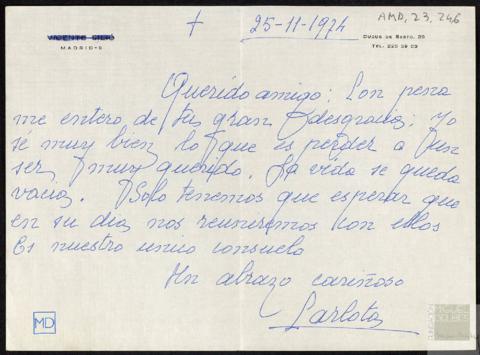 +
25-11-1974
AMD, 23, 246
MADRID-9
DUQUE DE SESTO, 25
Querido amigo: Con pena
me entero de tu gran desgracia: Yo
sé muy bien lo que es perder a un
ser muy querido. La vida se queda
vacia. Solo tenemos que esperar que
en su dia nos reuniremos con ellos
Es nuestro unico consuelo
Un abrazo cariñoso
Carlota
MD